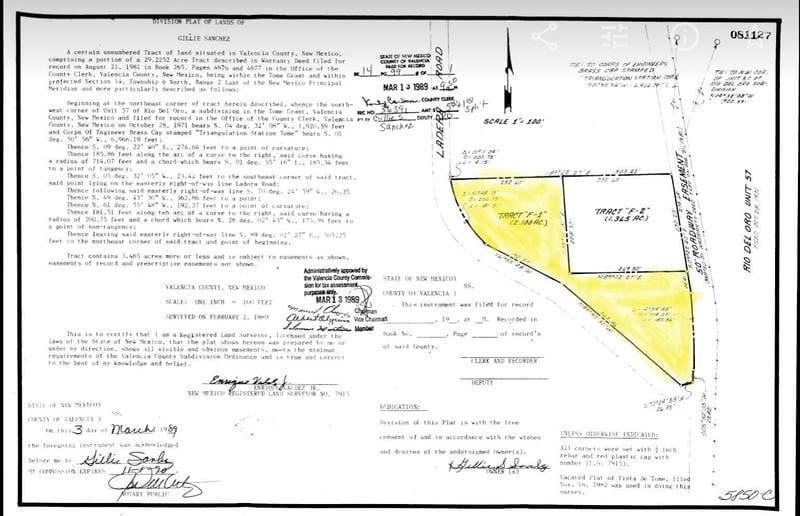 DIVISION PLAT OF LANDS OF
GILLIE SANCHEZ
A certain unnumbered Tract of land situated in Valencia County, New Mexico,
comprising a portion of a 29.2252 Acre Tract described in Warranty Deed filed for
record on August 21, 1981 in Book 265, Pages 4676 and 4677 in the Office of the
County Clerk, Valencia County, New Mexico, being within the Tome Grant and within
projected Section 14, Township 6 North, Range 2 East of the New Mexico Principal
Meridian and more particularly described as follows:
Beginning at the northeast corner of tract herein described, whence the north-
west corner of Unit 57 of Rio Del Oro, a subdivision in the Tome Grant, Valencia
County, New Mexico and filed for record in the Office of the County Clerk, Valencia
County, New Mexico on October 28, 1971 bears N. 04 deg. 32' 08" W., 1,920.59 feet
and Corps Of Engineer Brass Cap stamped "Triangulation Station Tome" bears N. 01
deg. 50' 56" W., 6,966.19 feet;
Thence S. 09 deg. 22' 40" E., 274.64 feet to a point of curvature;
Thence 185.86 feet along the arc of a curve to the right, said curve having
a radius of 714.07 feet and a chord which bears S. 01 deg. 55' 16" E., 185.34 feet
to a point of tangency;
Thence S. 05 deg. 32' 05" W., 23.42 feet to the southeast corner of said tract,
said point lying on the easterly right-of-way line Ladera Road;
Thence following said easterly right-of-way line S. 70 deg. 24' 59" W., 26.35
Thence N. 49 deg. 43' 30" W., 362.86 feet to a point;
Thence N. 61 deg. 55' 48" W., 192.37 feet to a point of curvature;
Thence 181.51 feet along the arc of a curve to the right, said curve having a
radius of 200.75 feet and a chord which bears N. 28 deg. 02' 43" W., 175.39 feet to
a point of non-tangency;
Thence leaving said easterly right-of-way line S. 89 deg. 02' 27" E., 505.25
feet to the northeast corner of said tract and point of beginning.
Tract contains 3.465 acres more or less and is subject to easements as shown,
easements of record and prescriptive easements not shown.
VALENCIA COUNTY, NEW MEXICO
SCALE: ONE INCH = 100 FEET
SURVEYED ON FEBRUARY 2, 1989
Administratively approved by
the Valencia County Commis-
sion for tax assessment
purposes only.
MAR 13 1989
Chairman
Vice Chairman
Member
This is to certify that I am a Registered Land Surveyor, licensed under the
laws of the State of New Mexico, that the plat shown hereon was prepared by me or
under my direction, shows all visible and obvious easements, meets the minimum
requirements of the Valencia County Subdivision Ordinance and is true and correct
to the best of my knowledge and belief.
ENRIQUE VALDEZ JR.
NEW MEXICO REGISTERED LAND SURVEYOR NO. 7915
STATE OF NEW MEXICO)
SS.
COUNTY OF VALENCIA )
On this 3 day of March 1989
the foregoing instrument was acknowledged
before me by Gillie
MY COMMISSION EXPIRES
NOTARY PUBLIC
STATE OF NEW MEXICO
COUNTY OF VALENCIA
FILED FOR RECORD
MAR 13 1989
COUNTY CLERK
DEPUTY
Sanchez
Split
STATE OF NEW MEXICO)
SS.
COUNTY OF VALENCIA )
This instrument was filed for record
, 19 at M. Recorded in
Book No. , Page of record's
of said County.
CLERK AND RECORDER
DEPUTY
DEDICATION:
Division of this Plat is with the free
consent of and in accordance with the wishes
and desires of the undersigned owner(s).
OWNER (s)
LADERA ROAD
SCALE 1"= 100'
TRACT "F-1"
(2.100 AC.)
TRACT "F-2"
(1.365 AC.)
50' ROADWAY EASEMENT
RIO DEL ORO UNIT 57
081127
TIE: TO CORPS OF ENGINEERS
BRASS CAP STAMPED,
"TRIANGULATION STATION TOME"
UNLESS OTHERWISE INDICATED:
All corners were set with ½ inch
rebar and red plastic cap with
number (L.S. 7915).
Vacated Plat of Vista De Tome, filed
Nov. 16, 1982 was used in doing this
survey.
5850 C